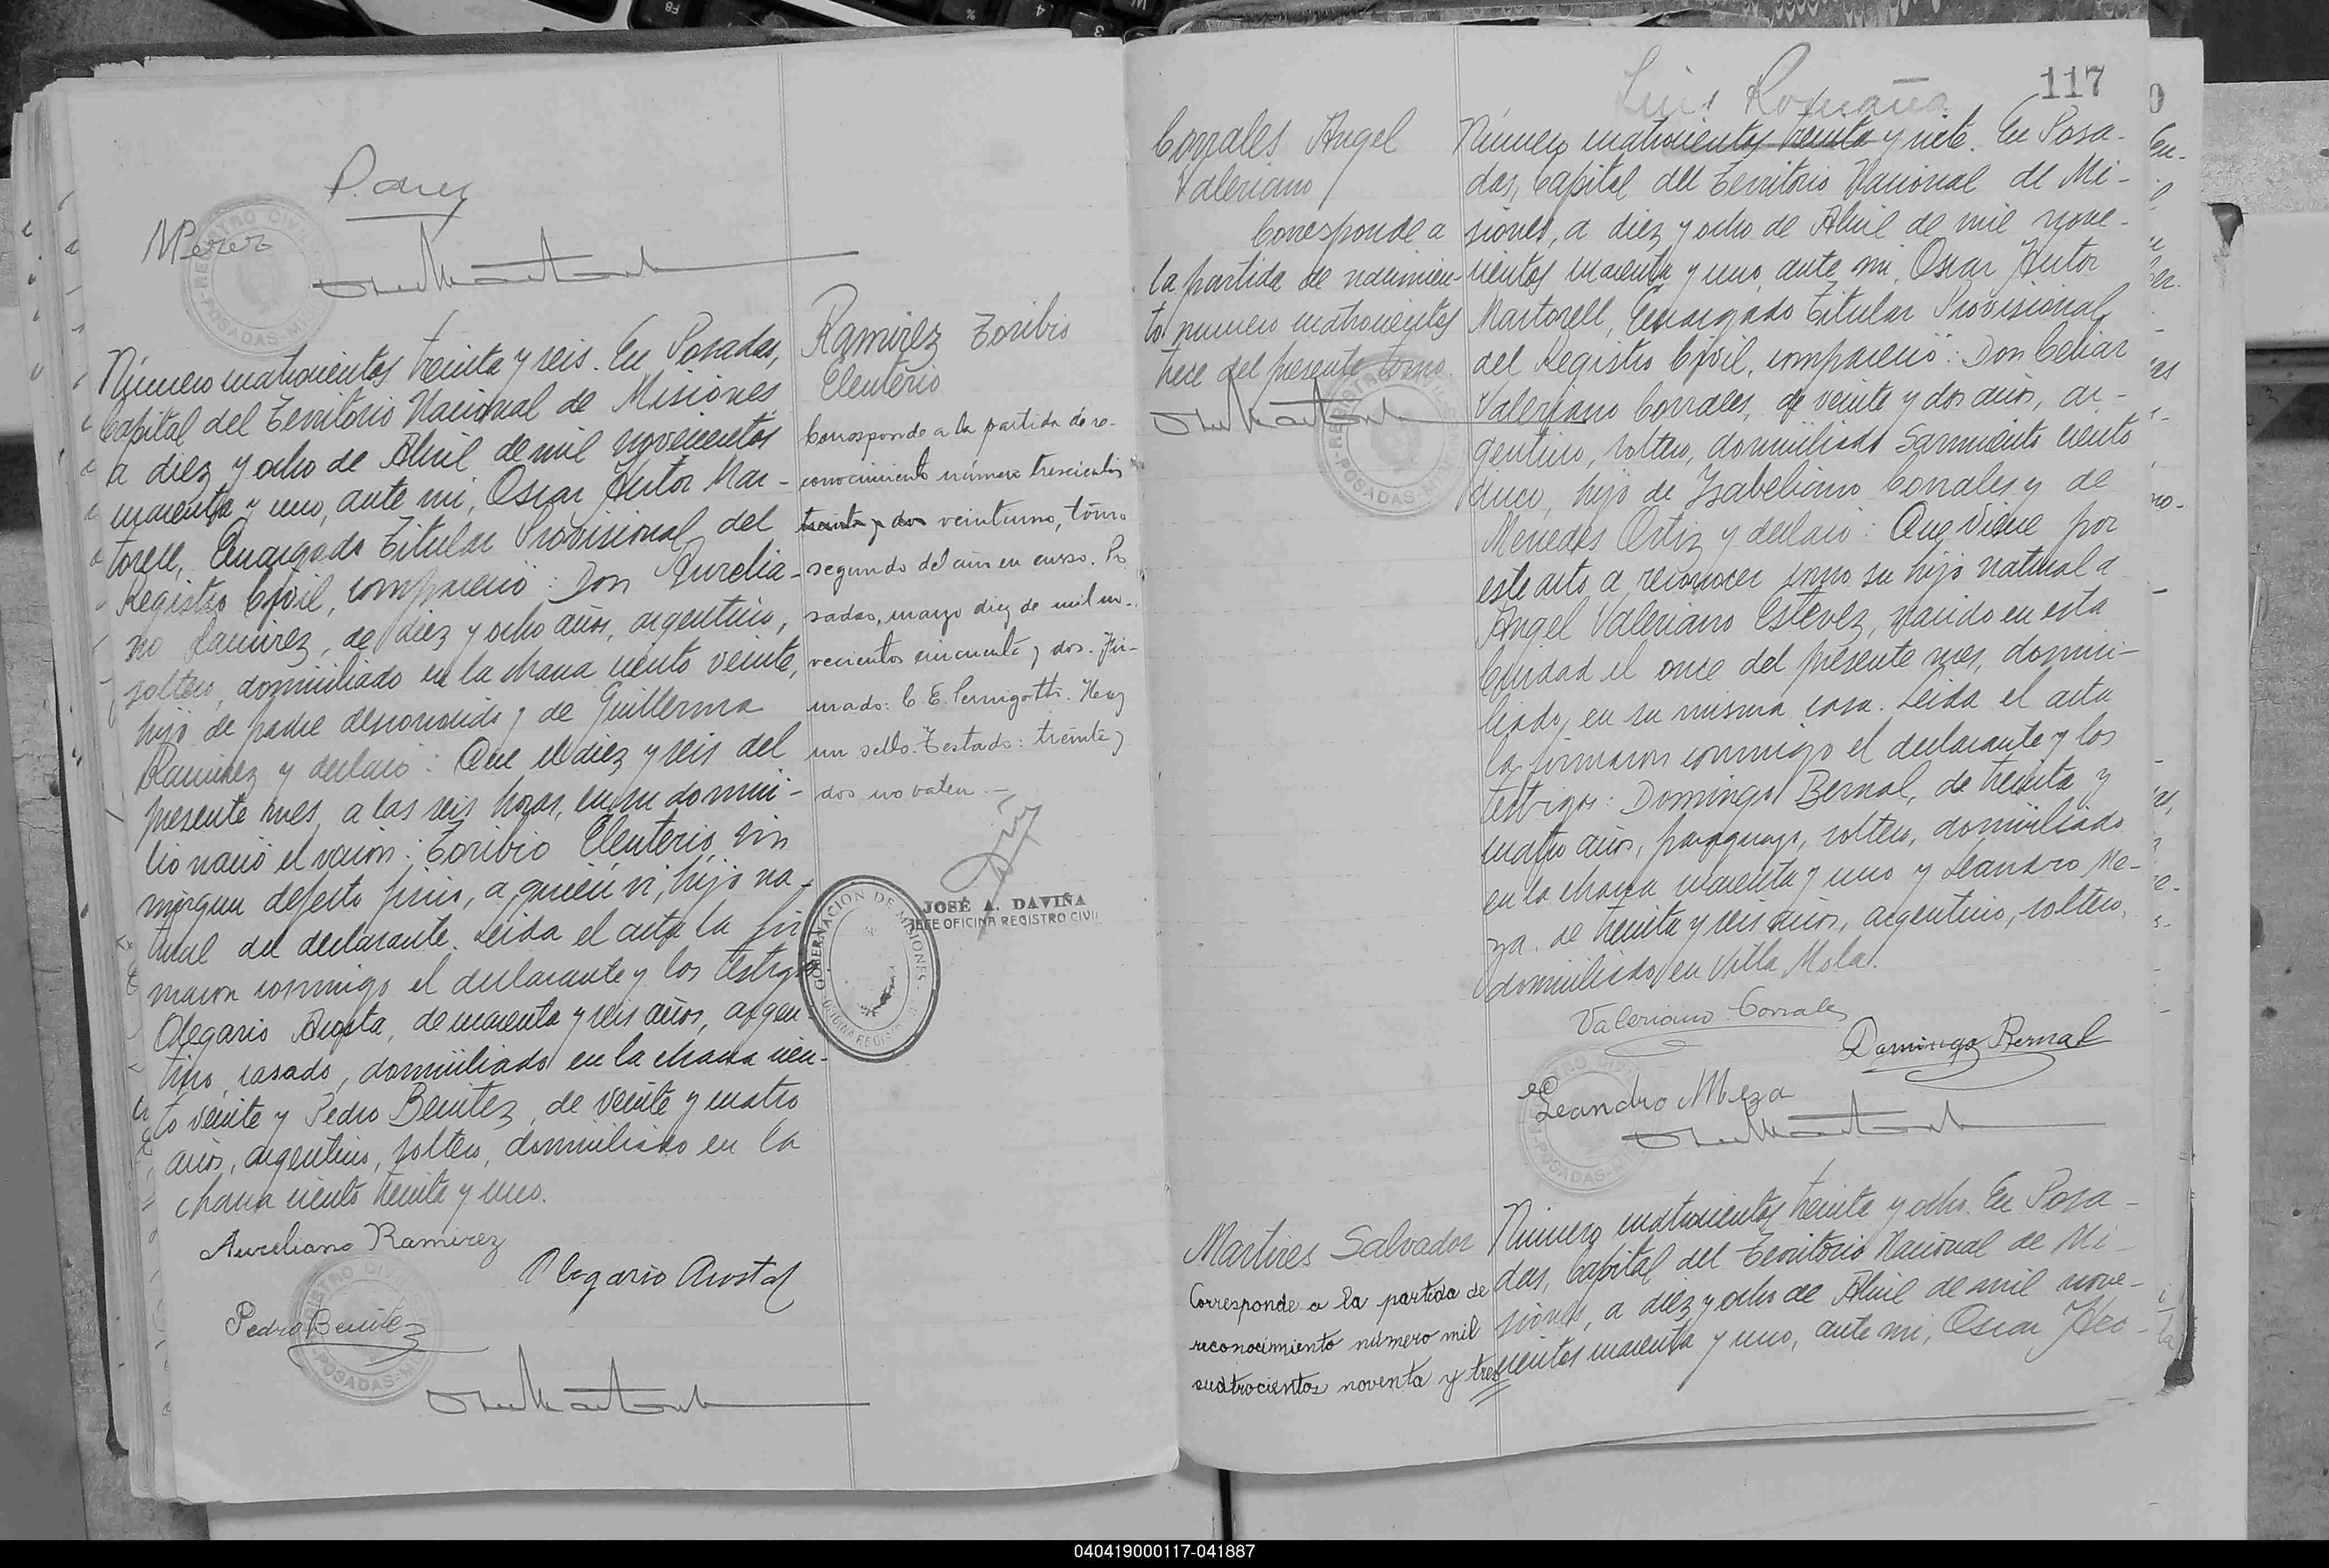 Perez
Número cuatrocientos treinta y seis. En Posadas,
Capital del Territorio Nacional de Misiones
a diez y ocho de Abril de mil novecientos
cuarenta y uno, ante mi, Oscar Hector Mar-
torell, Encargado Titular Provisional del
Registro Civil, compareció: Don Aurelia-
no Ramirez, de diez y ocho años, argentino,
soltero, domiciliado en la chacra ciento veinte,
hijo de padre desconocido y de Guillerma
Ramirez y declaró: Que el diez y seis del
presente mes, a las seis horas, en su domici-
lio nació el varón: Toribio Eleuterio, sin
ningun defecto fisico, a quien vi, hijo na-
tural del declarante. Leida el acta la fir-
maron conmigo el declarante y los testigos
Olegario Acosta, de cuarenta y seis años, argen-
tino, casado, domiciliado en la chacra cien-
to veinte y Pedro Benitez, de veinte y cuatro
años, argentino, soltero, domiciliado en la
chacra ciento treinta y uno.
Aureliano Ramirez
Olegario Acosta
Pedro Benitez
Ramirez Toribio
Eleuterio
Corresponde a la partida de re-
conocimiento número trescientos
treinta y dos veintiuno, tomo
segundo del año en curso. Po
sadas, mayo diez de mil no-
vecientos cincuenta y dos. Fir-
mado: C. E. Pernigotti. Hay
un sello. Testado: treinta y
dos no valen.-
JOSÉ A. DAVIÑA
JEFE OFICINA REGISTRO CIVIL
GOBERNACION DE MISIONES
117
Corrales Angel
Valeriano
Corresponde a
la partida de nacimien-
to numero cuatrocientos
trece del presente tomo.
Número cuatrocientos treinta y siete. En Posa-
das, Capital del Territorio Nacional de Mi-
siones, a diez y ocho de Abril de mil nove-
cientos cuarenta y uno, ante mi, Oscar Hector
Martorell, Encargado Titular Provisional,
del Registro Civil, compareció: Don
Valeriano Corrales, de veinte y dos años, ar-
gentino, soltero, domiciliado Sarmiento ciento
cinco, hijo de Isabeliano Corrales y de
Mercedes Ortiz y declaró: Que viene por
este acto a reconocer como su hijo natural a
Angel Valeriano Estevez, nacido en esta
Ciudad el once del presente mes, domici-
liado, en su misma casa. Leida el acta
la firmaron conmigo el declarante y los
testigos: Domingo Bernal, de treinta y
cuatro años, paraguayo, soltero, domiciliado
en la chacra cuarenta y uno y Leandro Me-
za, de treinta y seis años, argentino, soltero,
domiciliado en Villa Mola.
Valeriano Corrales
Domingo Bernal
Leandro Meza
Martires Salvador
Corresponde a la partida de
reconocimiento número mil
cuatrocientos noventa y tres
Número cuatrocientos treinta y ocho. En Posa-
das, Capital del Territorio Nacional de Mi-
siones, a diez y ocho de Abril de mil nove-
cientos cuarenta y uno, ante mi, Oscar Hec-
040419000117-041887